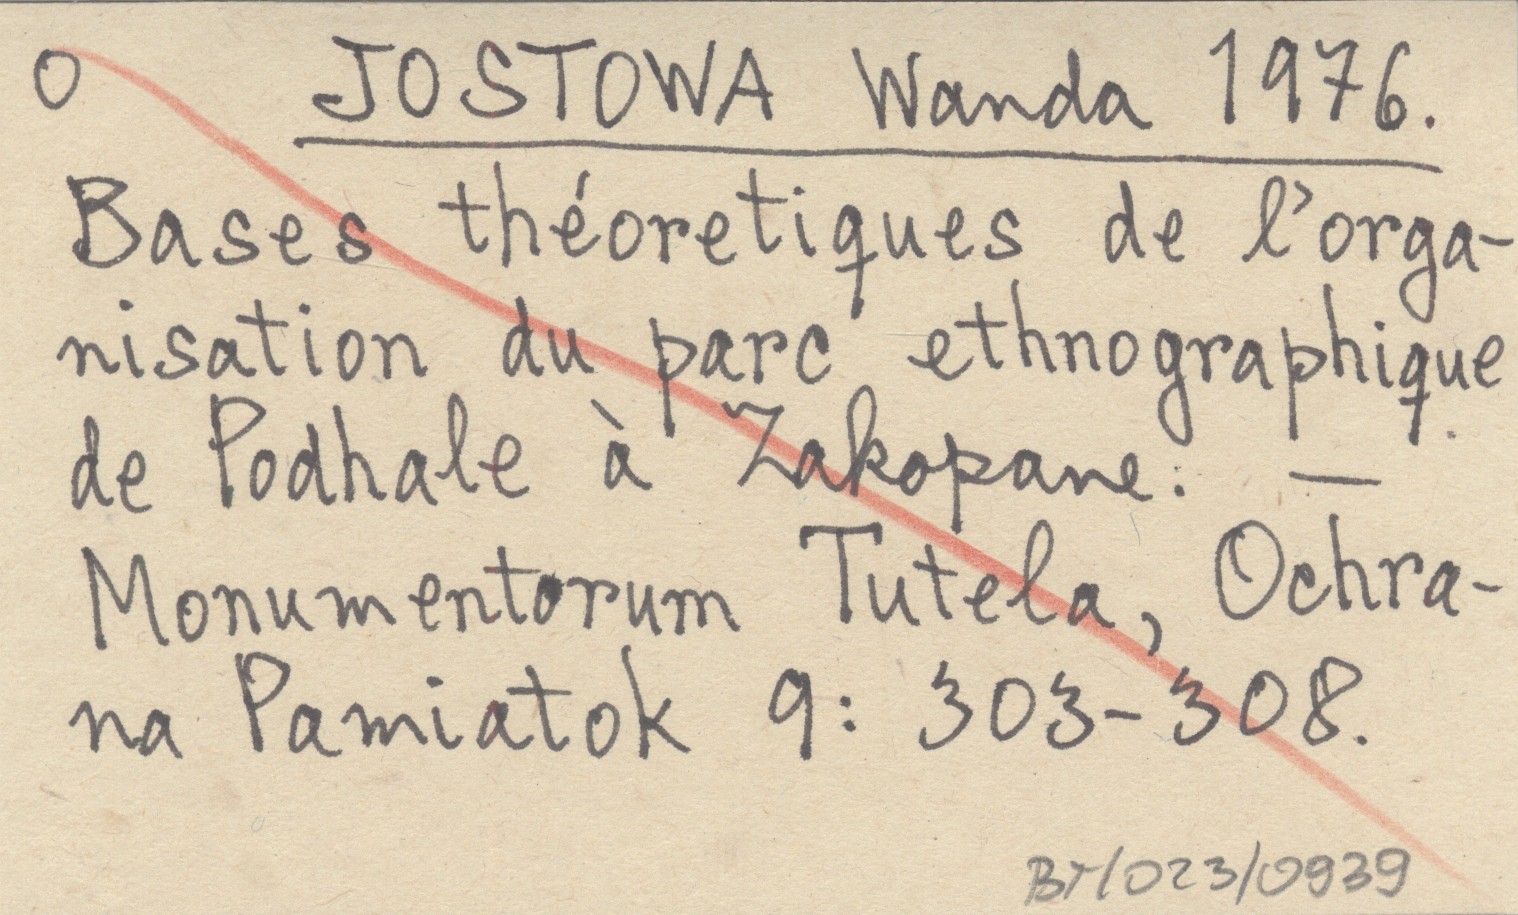 O JOSTOWA Wanda 1976.
Bases théoretiques de l'orga-
nisation du parc ethnographique
de Podhale à Zakopane: —
Monumentorum Tutela, Ochra-
na Pamiatok 9: 303-308.
BT/023/0939